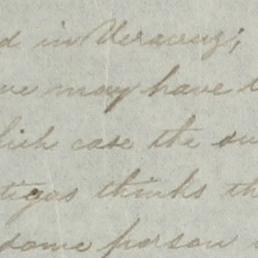 d in Veracruz;
we may have
which case the
tigas thinks th
some person